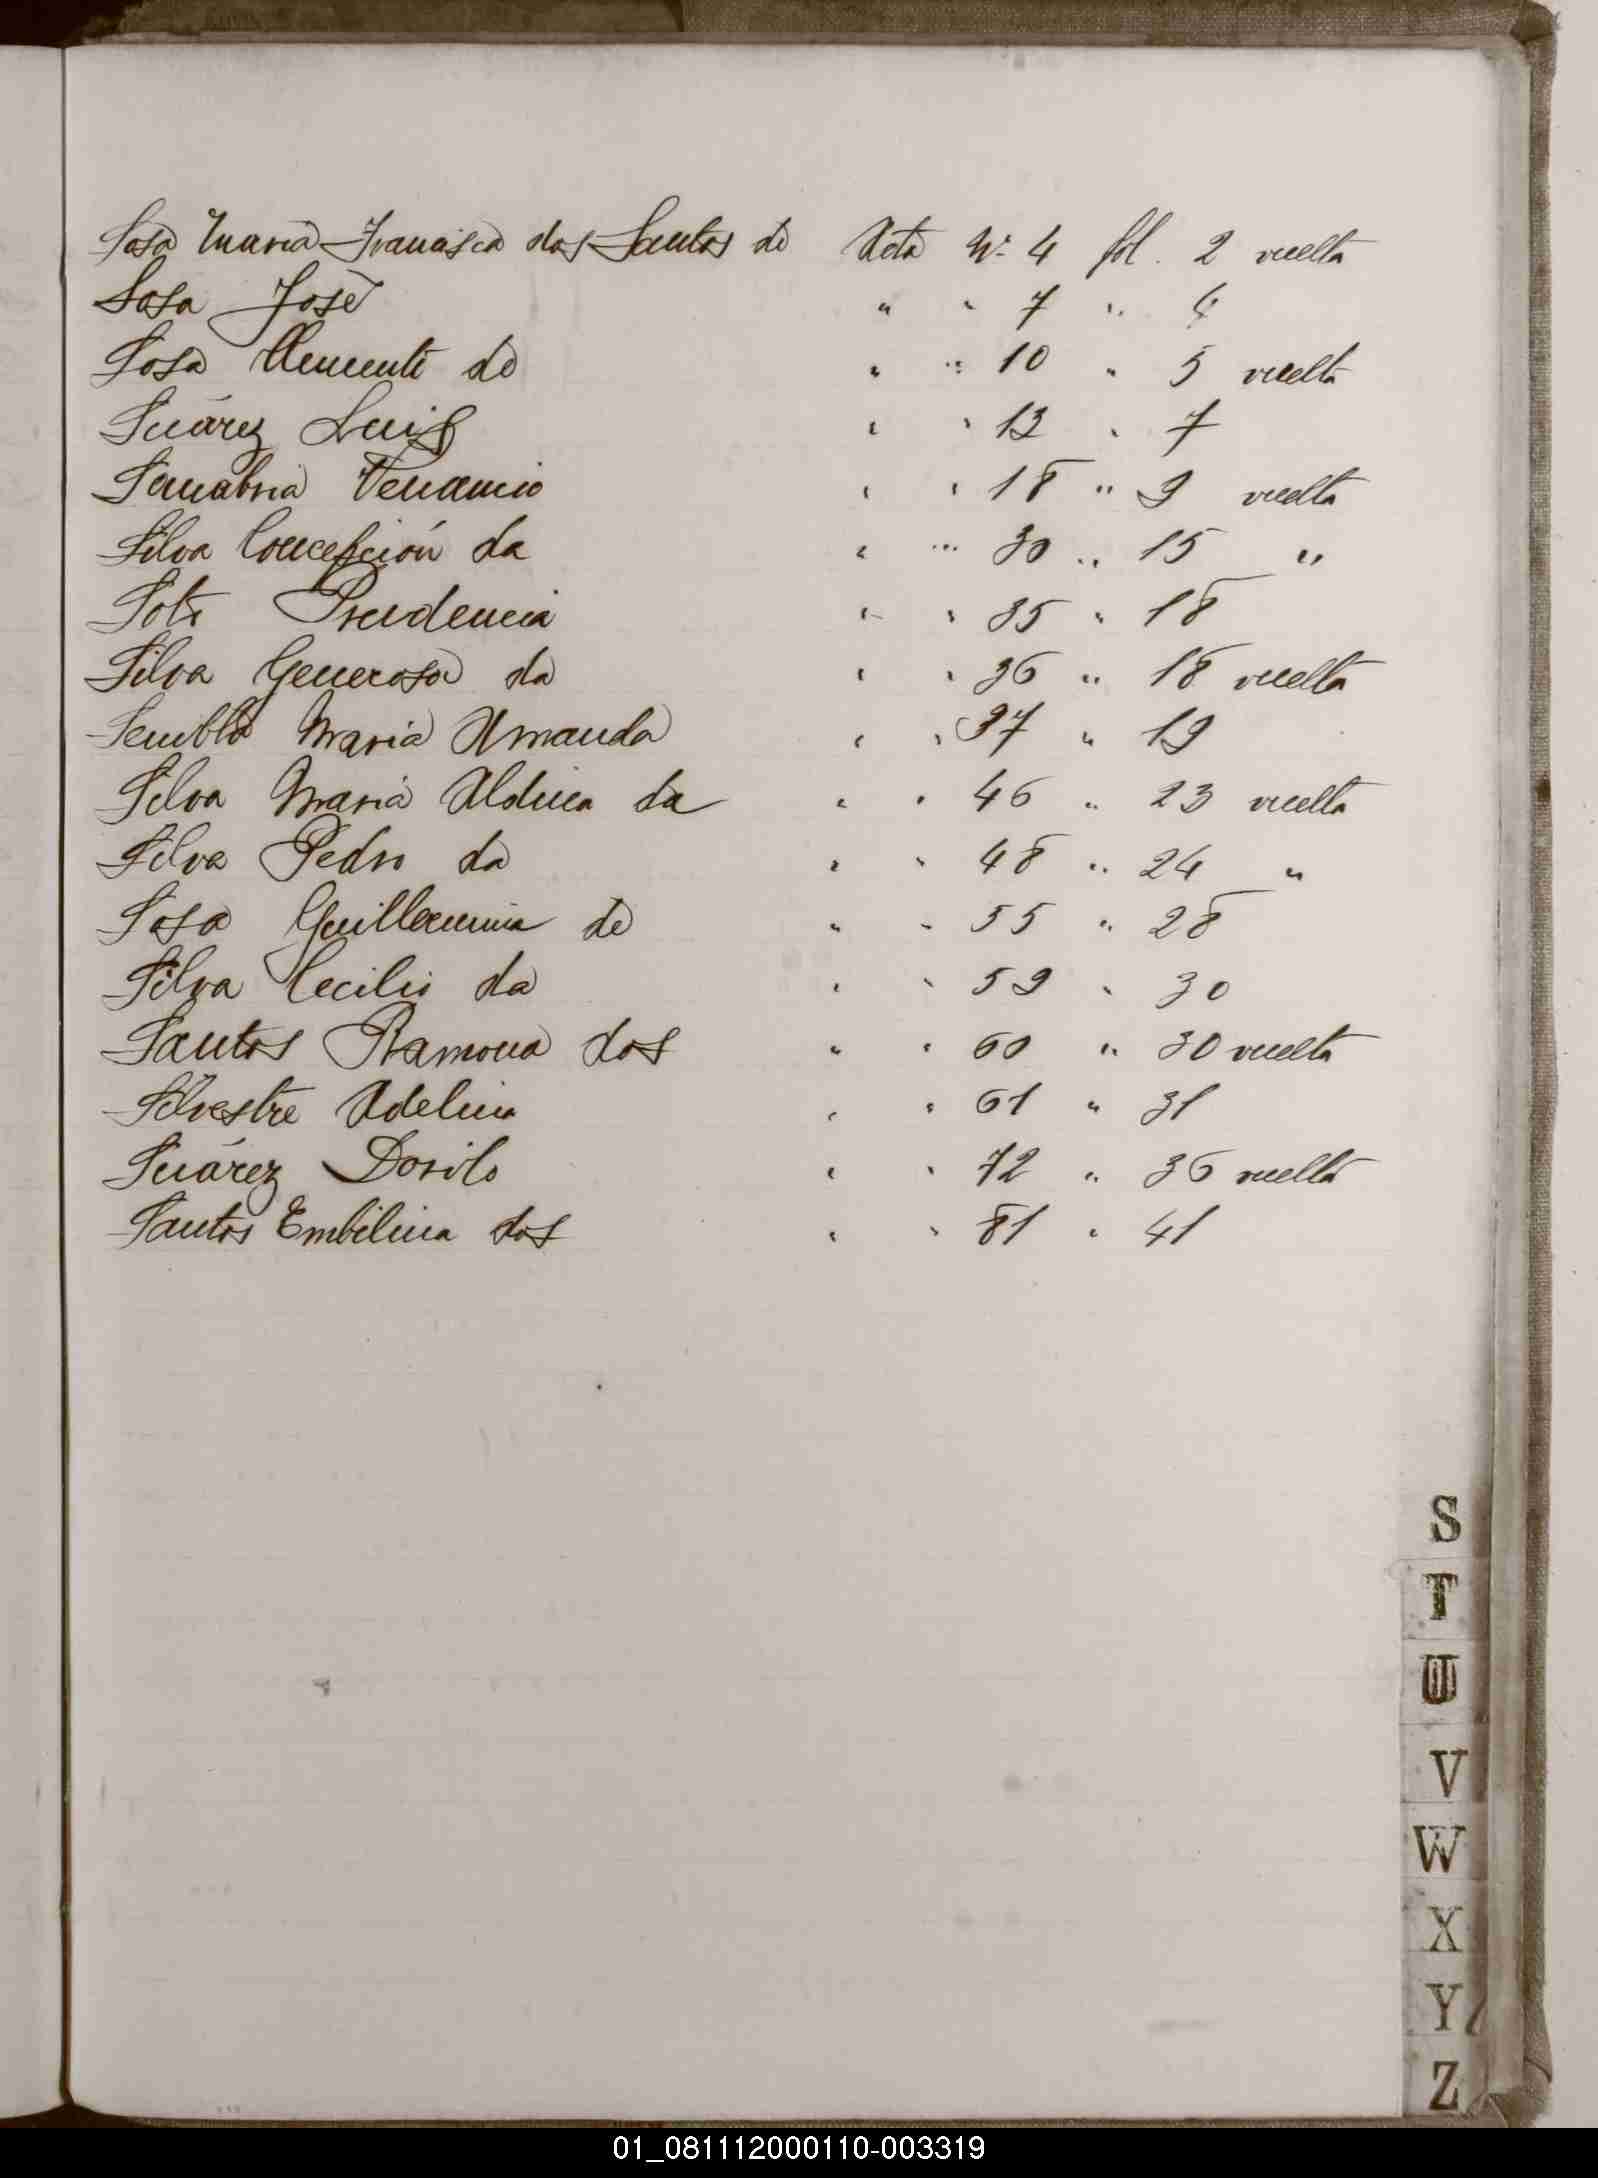 Sosa Maria Francisca dos Santos de Acta Nº 4 fol. 2 vuelta
Sosa José " " 7 " 4
Sosa Clemente de " " 10 " 5 vuelta
Suárez Luis " " 13 " 7
Sanabria Venancio " " 18 " 9 vuelta
Silva Concepción da " " 30 " 15 "
Soto Prudencia " " 35 " 18
Silva Generosa da " " 36 " 18 vuelta
Maria Amanda " " 37 " 19
Silva Maria Aldina da " " 46 " 23 vuelta
Silva Pedro da " " 48 " 24 "
Sosa Guillermina de " " 55 " 28
Silva Cecilio da " " 59 " 30
Santos Ramona dos " " 60 " 30 vuelta
Silvestre Adelina " " 61 " 31
Suárez Dorilo " " 72 " 36 vuelta
Santos Embilina dos " " 81 " 41
S
T
U
V
W
X
Y
Z
01_081112000110-003319